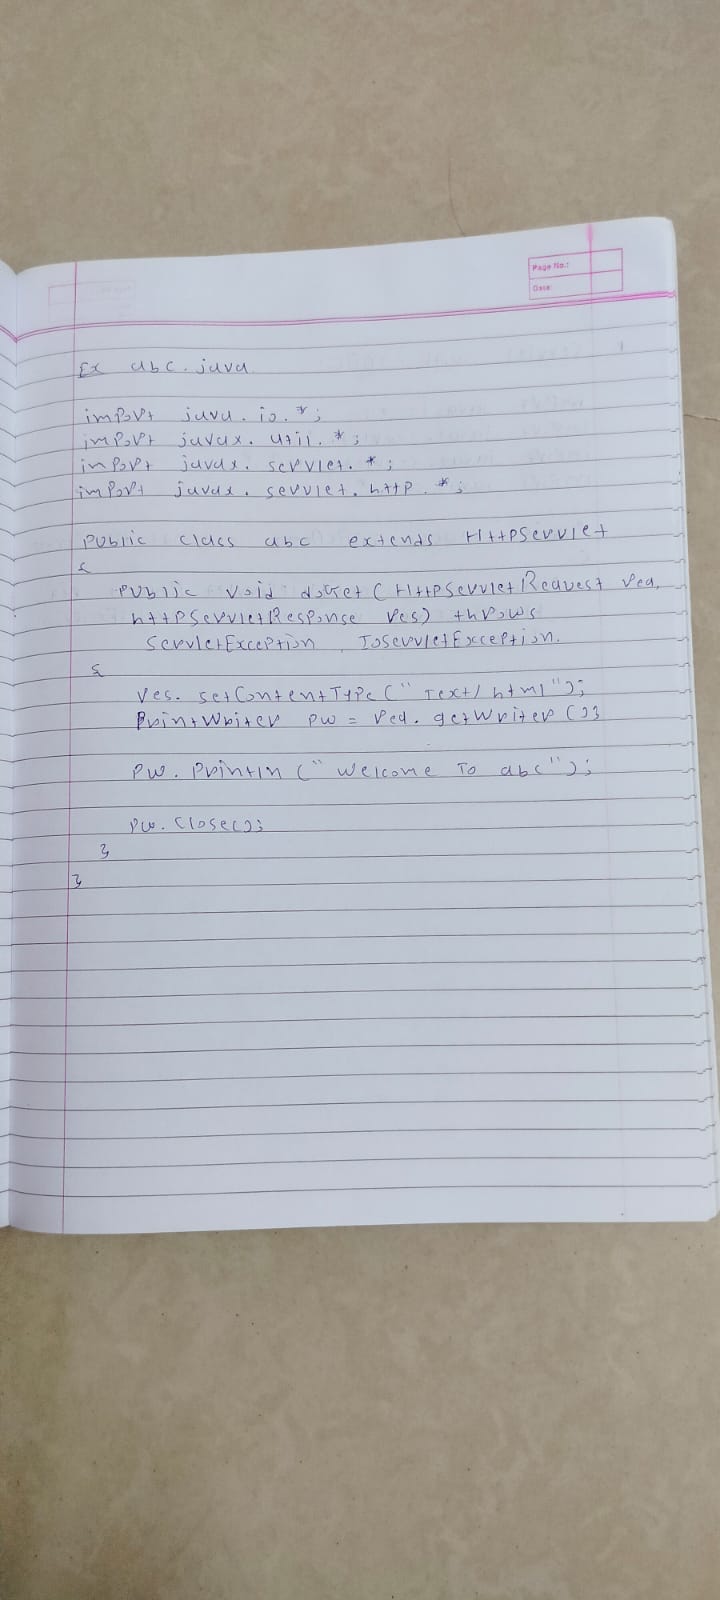 Page No.:
Date:
Ex abc.java
import java.io.*;
import javax.util.*;
import javax.servlet.*;
import javax.servlet.http.*;
Public class abc extends HttpServlet
{
Public void doGet (HttpServletRequest req,
httpServletResponse res) throws
ServletException, IOServletException.
{
res.setContentType("Text/html");
PrintWriter pw = req.getWriter();
pw.Println("Welcome To abc");
pw.Close();
}
}